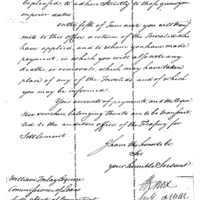 be pleased to adhere strictly to the given
dates
on the fifth of June next you will trans
mit to the office a return of the Invalids who
have applied, and to whom you have made
payment, in which you will also note any
deaths, or removals which may have taken
place of any of the Invalids and of which
you may be informed.
Your accounts of payment and the
vouchers belonging thereto are to be transmit
ted to the auditors office of the Treasury for
Settlement.
I have the honor to be
Sir
your humble Servant
Knox
Secy of War
William Imlay Esquire
Commissioner of Loans